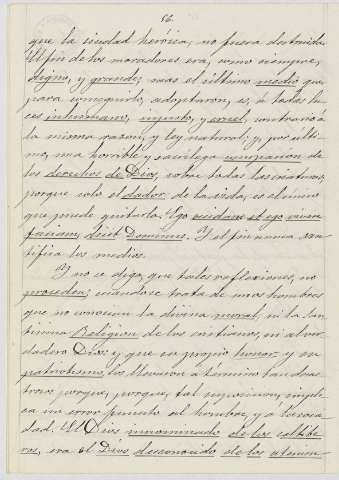 56.
que la ciudad heróica, no fuera destruida.
El fin de los moradores era, como siempre,
digno, y grande; mas el último medio que
para conseguirlo, adoptaron, es, á todas lu-
ces inhumano, injusto, y cruel, contrario á
la misma razon, y ley natural; y, por últi-
mo, una horrible y sacrílega usurpacion de
los derechos de Dios, sobre todas las criaturas;
porque solo el dador de la vida, es el único
que puede quitarla. Ego occidam et ego vivere
faciam, dicit Dominus. Y el fin nunca san-
tifica los medios.
Y no se diga, que tales reflexiones, no
proceden; cuando se trata de unos hombres
que no conocian la divina moral, ni la San-
tísima Religion de los cristianos, ni al ver-
dadero Dios: y que su propio honor y su
patriotismo, los llevaron á término tan desas-
troso porque, porque, tal suposicion, impli-
ca un error funesto al hombre, y á la socie-
dad. El Dios innominado de los celtíbe-
ros, era el Dios desconocido de los atenien-